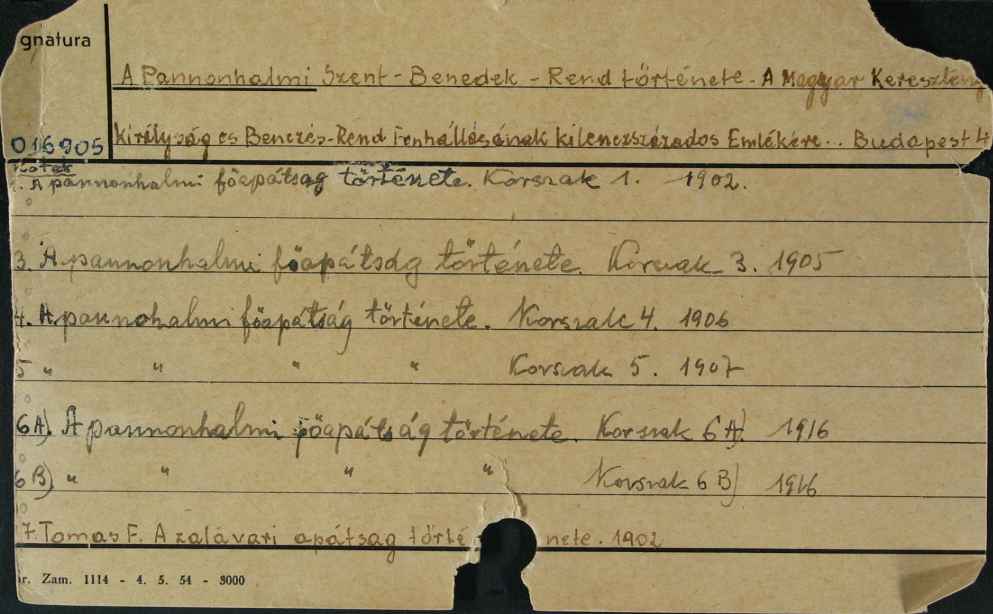 gnatura
A Pannonhalmi Szent - Benedek - Rend története - A Magyar Keresztény
016905 Királyság es Benczés-Rend Fenhállásának kilenczszázados Emlékére... Budapest
Kötet
1. A pannonhalmi főapátság története. Korszak 1. 1902.
3. A pannonhalmi főapátság története. Korszak 3. 1905
4. A pannohalmi főapátság története. Korszak 4. 1906
5 " " " " Korszak 5. 1907
6A) A pannonhalmi főapátság története. Korszak 6A). 1916
6B) " " " " Korszak 6B) 1916
7. Tomas F. A zalavari apátsag törté nete. 1902
r. Zam. 1114 - 4. 5. 54 - 3000